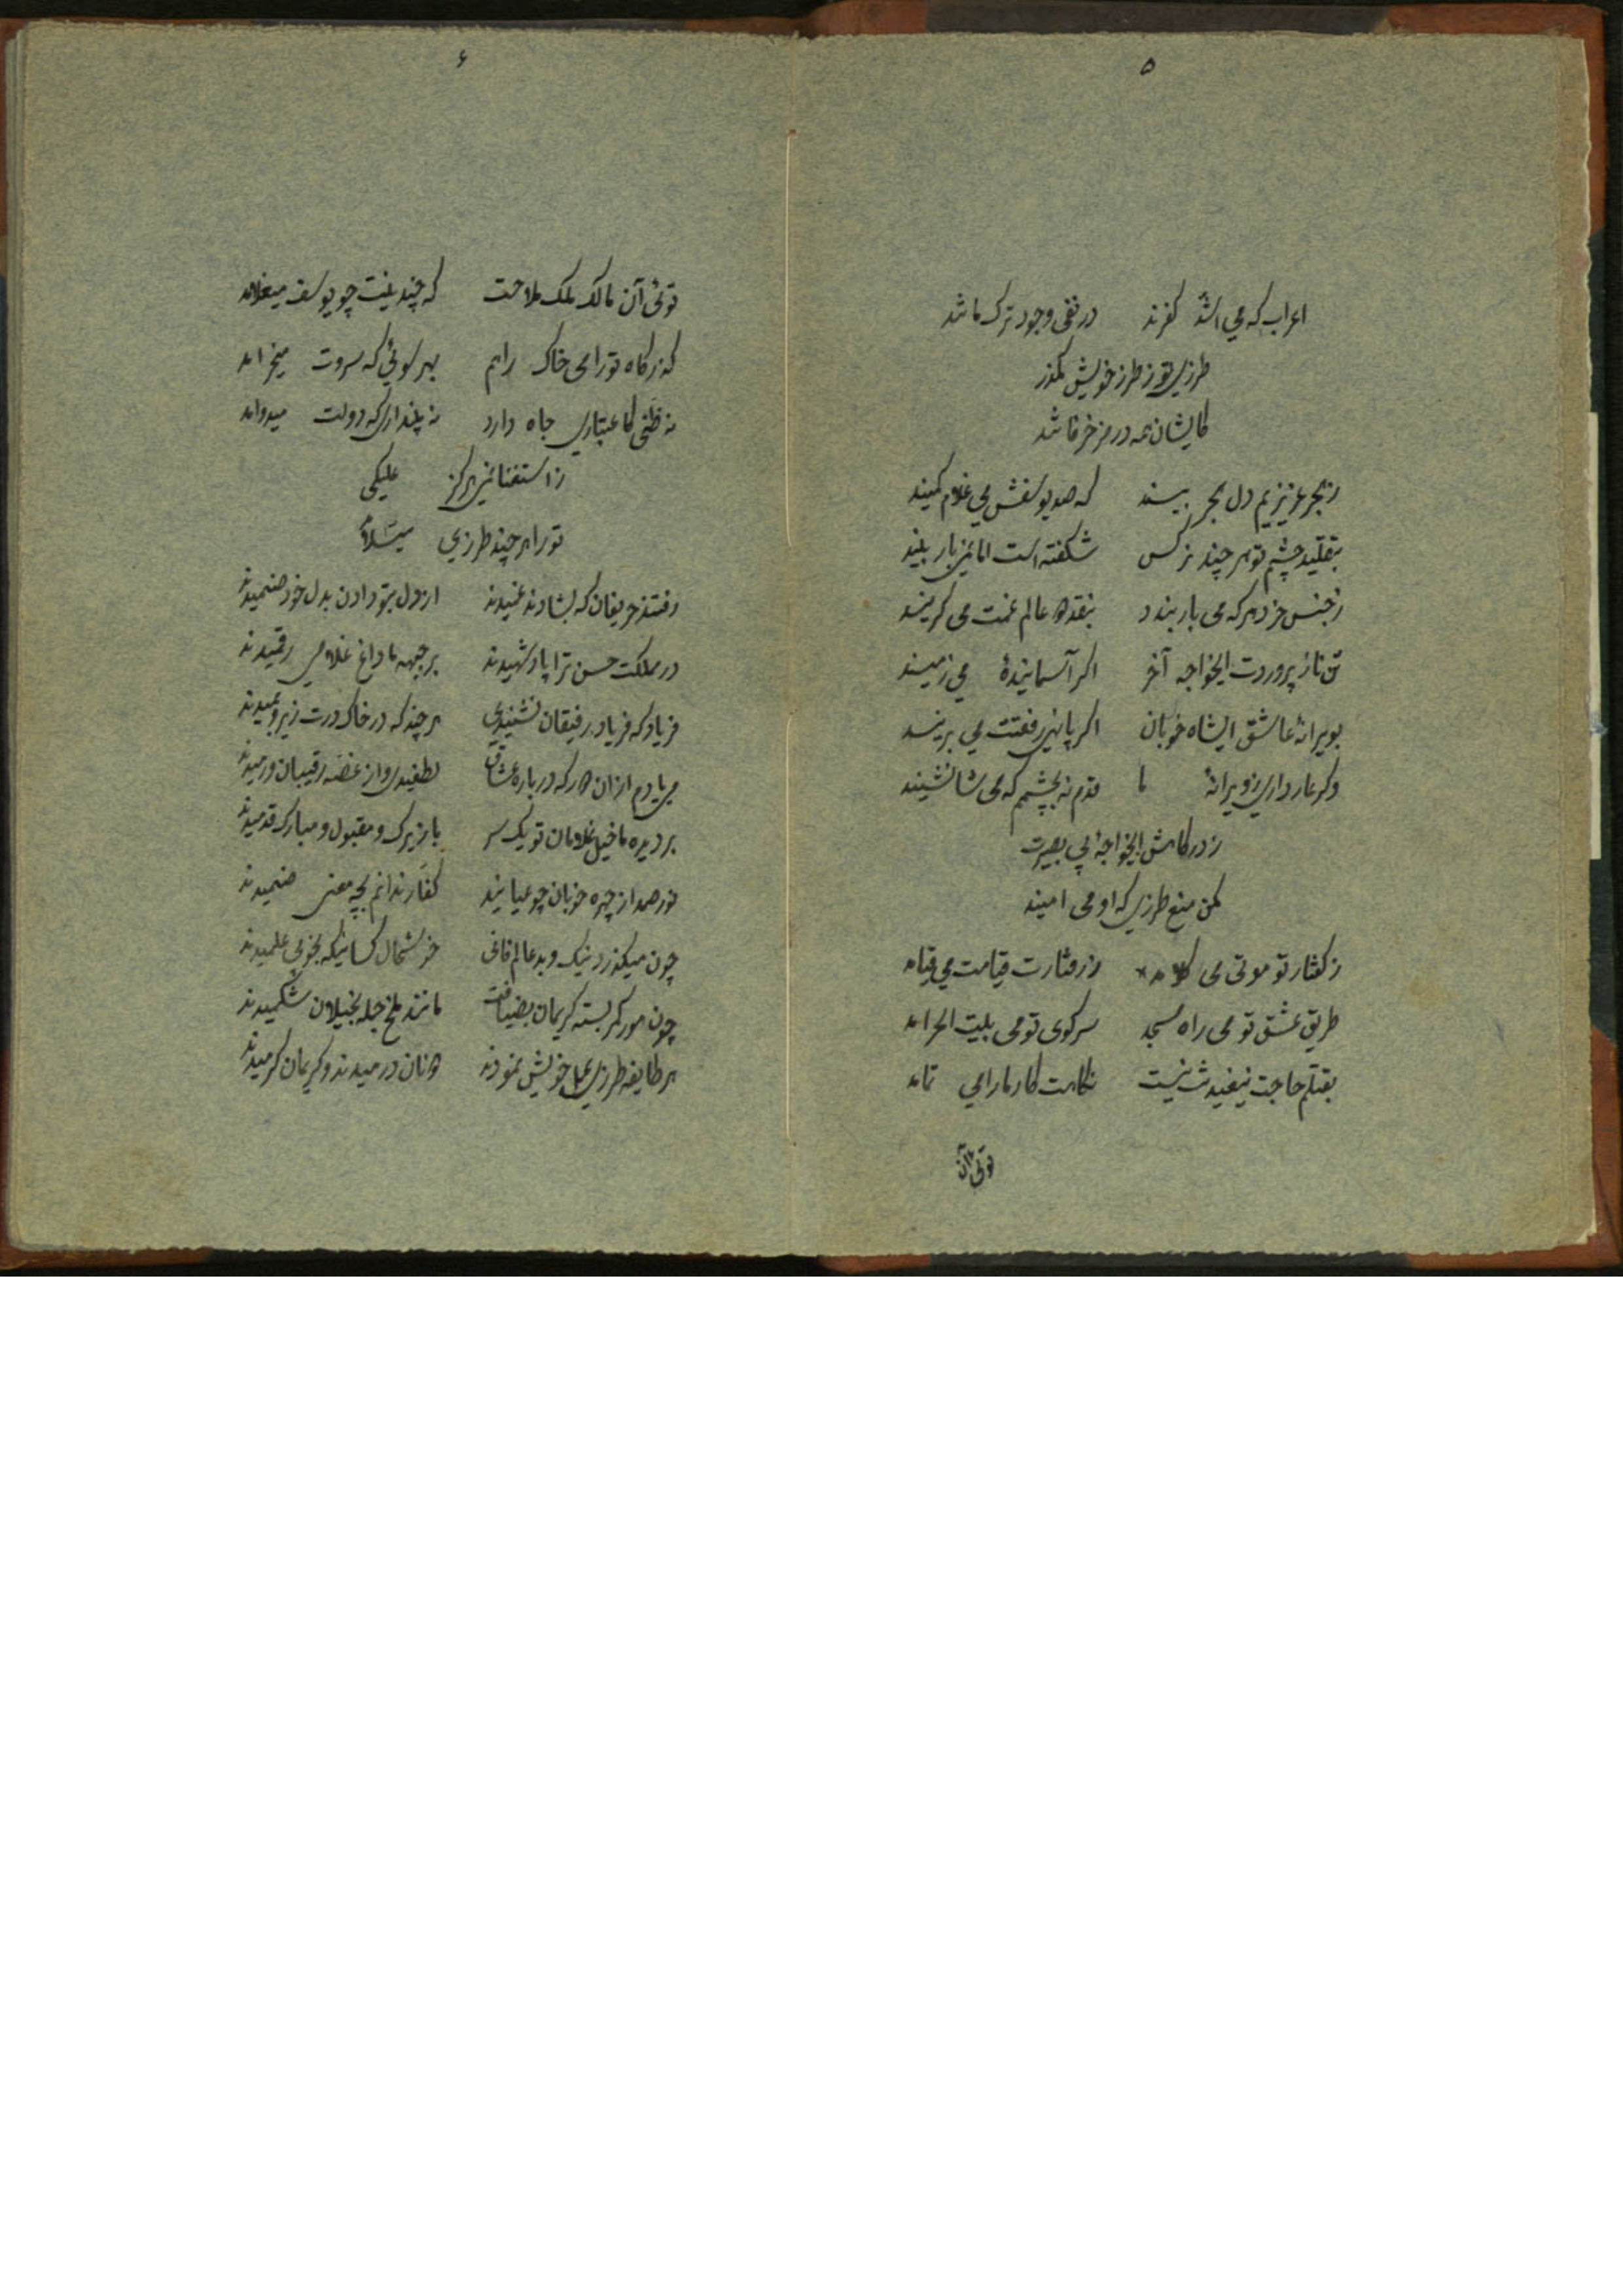 ۵
اعراب که می اشدُّ کفرند در نفی وجود ترک ماشد
طرزی تو ز طرز خویش مگذر
کایشان همه در مزخرفاشد
ز هجر عزیزیم دل هجر بیند که صد یوسفش می غلام کمیند
بتقلید چشم تو هر چند نرکس شکفته است اما نمیزبار بلیند
ز جنس خرد هر که می باربندد بنقد دو عالم غمت می کزیند
تن ناز پروردت ایخواجه آخر اکر آسمانیدهٔ می زمیند
بویرانهٔ عاشق ایشاه خوبان اکر پانهی رفعتت می برینند
وکر عار داری ز ویرانهٔ ما قدم نه بچشمم که می شانشیند
ز درکاهش ایخواجهٔ بی بصیرت
مکن منع طرزی که او می امیند
ز کفتار تو موتی می کلامد ز رفتارت قیامت می قیامد
طریق عشق تو می راه مسجد سرکوی تو می بیت الحرامد
بقتلم حاجت تیغیدنت نیست نکاهت کار ما را می تمامد
توئی آن
۶
توئی آن مالک ملک ملاحت که چندینت چو یوسف میغلامد
که درکاه تو را می خاک راهم بهر سوئی که سروت میخرامد
نه ظنّی کاعتباری جاه دارد نه پنداری که دولت میدوامد
ز استغنا نمیهرکز علیکی
تو را هر چند طرزی میسلامد
رفتند حریفان که بشادند غمیدند از دل بتو دادن بدل خود صنمیدند
در مملکت حسن ترا پادشهیدند بر جبهه ما داغ غلامی رقمیدند
فریاد که فریاد رفیقان نشنیدی هر چند که در خاک درت زیر و بمیدند
می یادم از ان دور که در باره عشاق لطفیدی و از غصه رقیبان ورمیدند
بر دیده ما خیل غلامان تو یک سر با بزیرک و مقبول و مبارک قدمیدند
نور صمد از چهره خوبان چو عیانید کفار ندانم بچه معنی صنمیدند
چون میکذرد نیک و بد عالم فانی خوشحال کسانیکه بخوبی علمیدند
چون مور کمر بسته کریمان بضیافت مانند ملخ جمله بخیلان شکمیدند
هر طایفه طرزی عمل خویش نمودند دونان درمیدند و کریمان کرمیدند